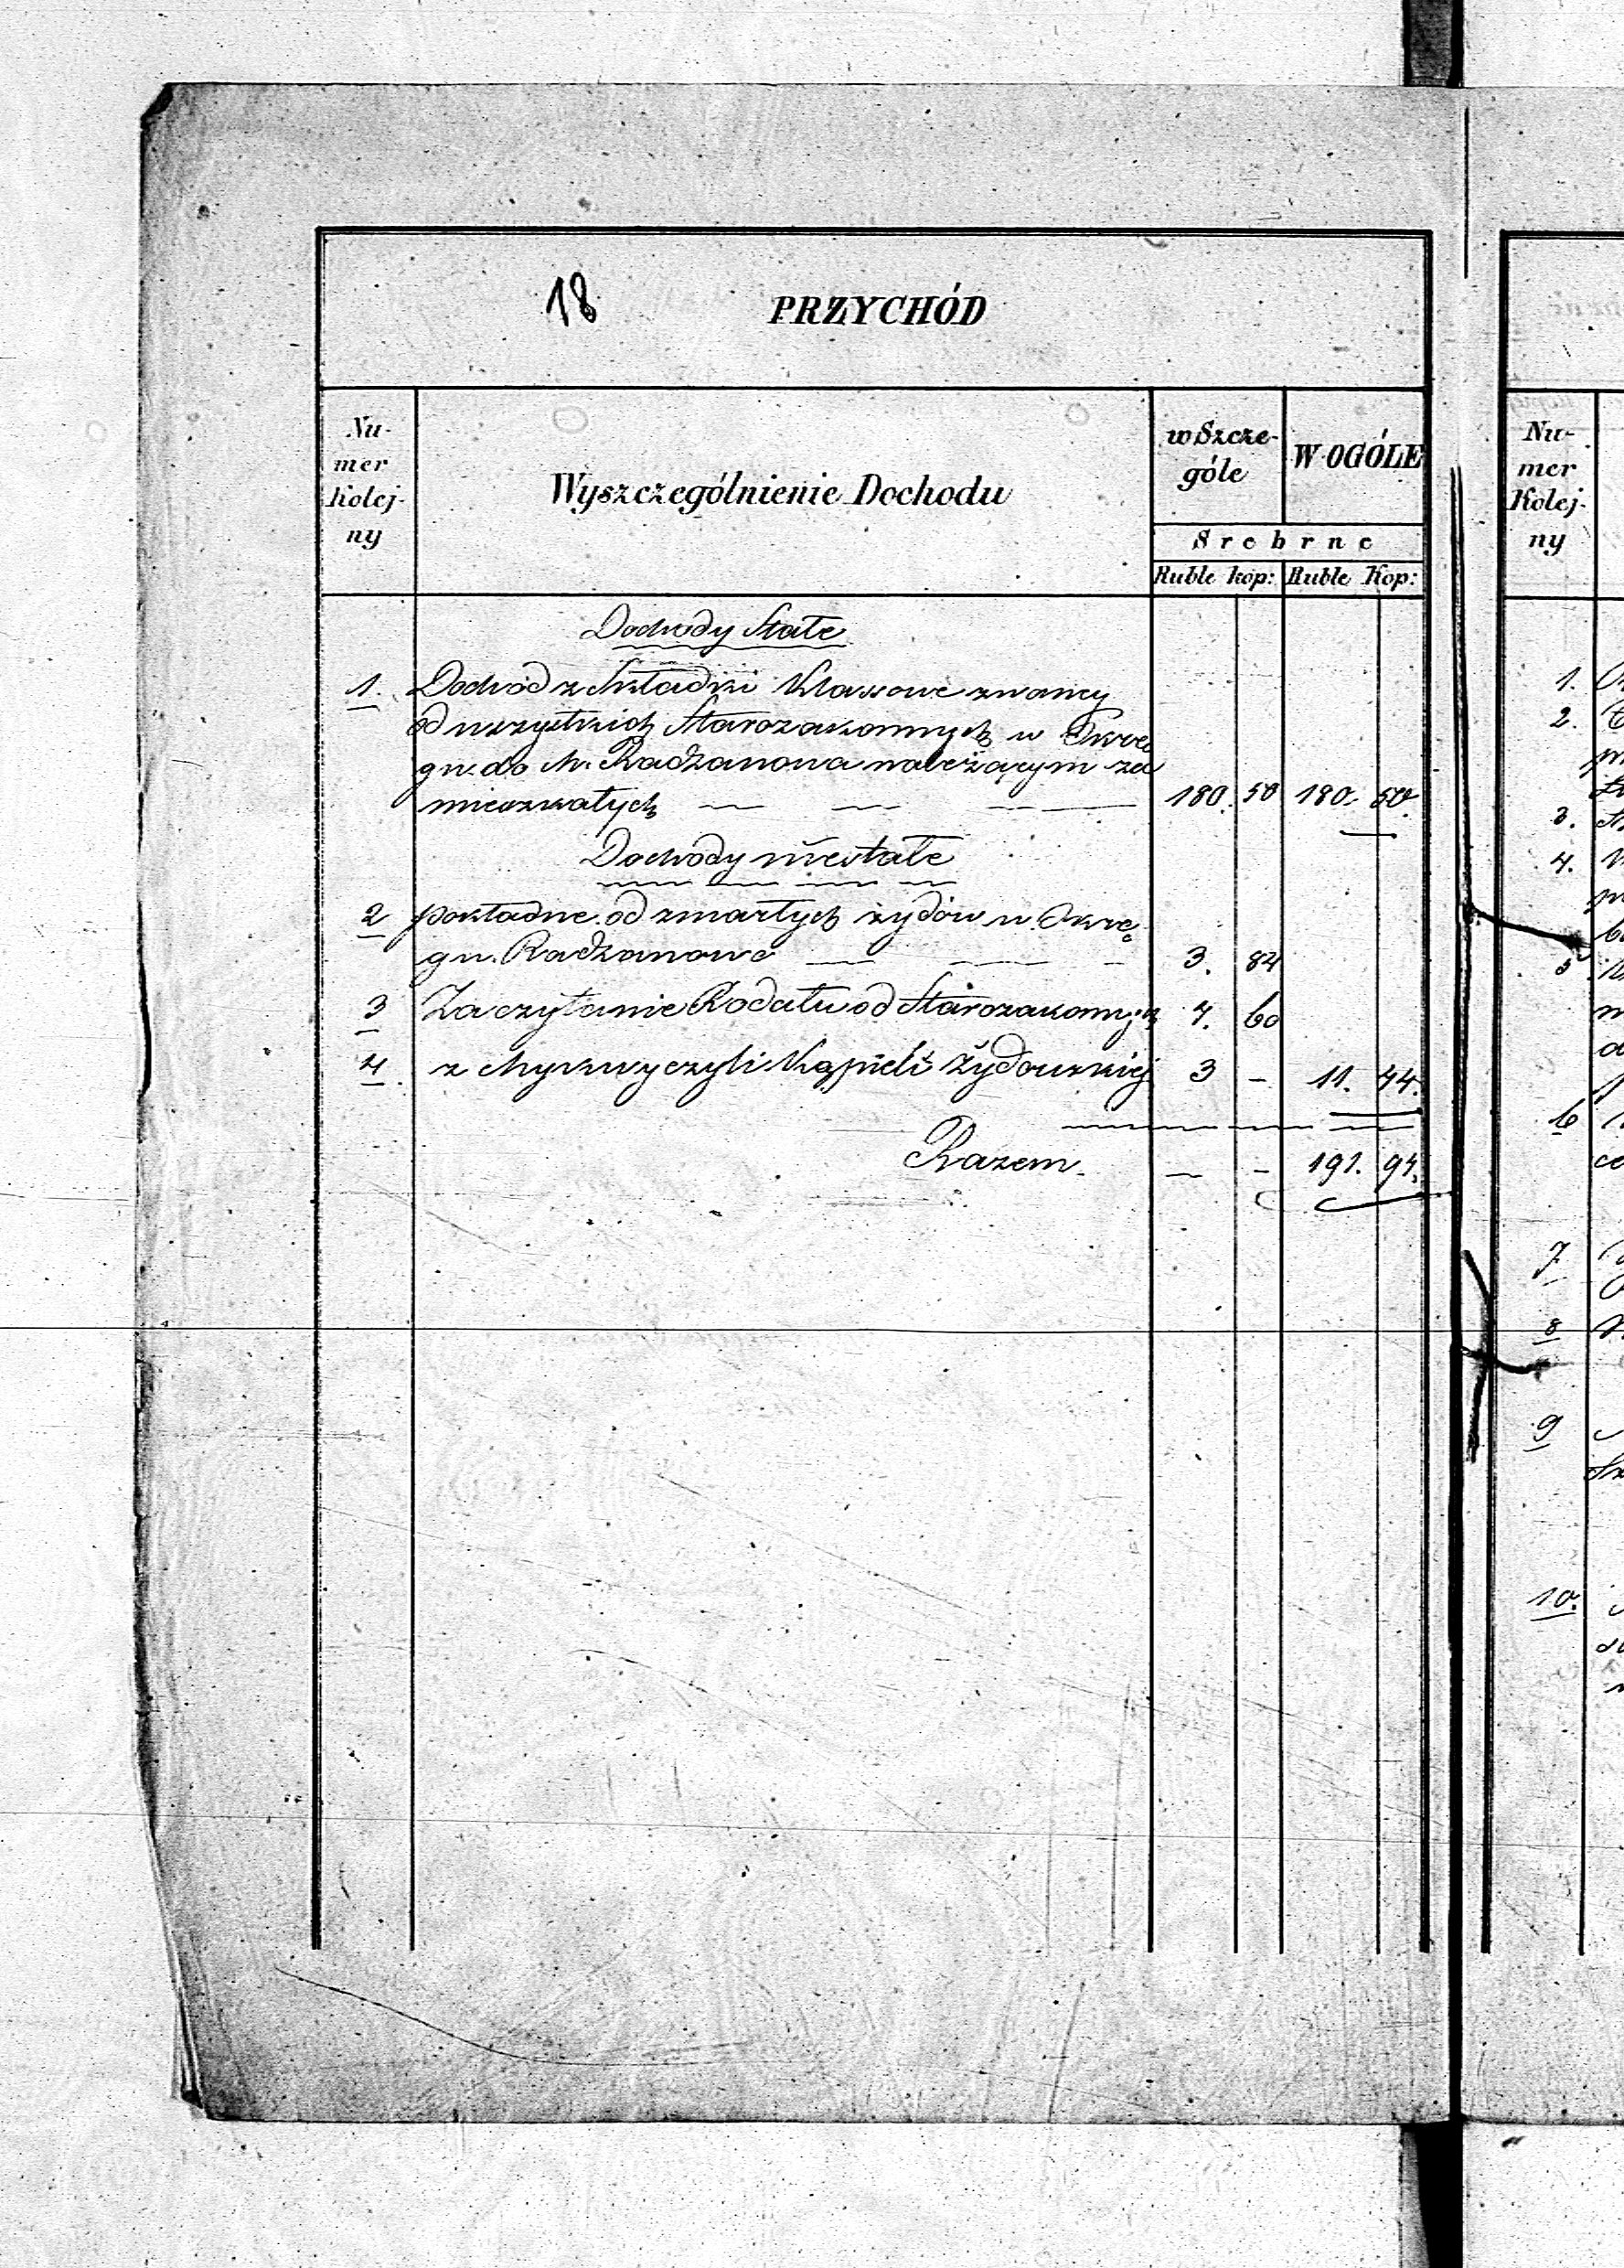 18 PRZYCHÓD
Nu-
mer
Kolej-
ny
Wyszczególnienie Dochodu
w Szcze-
góle
W OGÓLE
Srebrne
Ruble kop: Ruble Kop:
Dochody Stałe
1. Dochód z Składki Klassowe zwaney
od wszystkich Starozakonnych w Okrę
gu. do M. Radzanowa należącym za
mieszkałych — — — 180. 50 180. 50.
Dochody niestałe
2 pokładne od zmarłych żydów w Okrę
gu. Radzanowo — — - 3. 84
3 Za czytanie Rodału od Starozakonnych 4. 60
4. z Mykwy czyli Kąpieli Żydowskiej 3 - 11. 44.
Razem — - 191. 94.
Nu-
mer
Kolej-
ny
1.
2.
3.
4.
5
6
7
8
9
10.